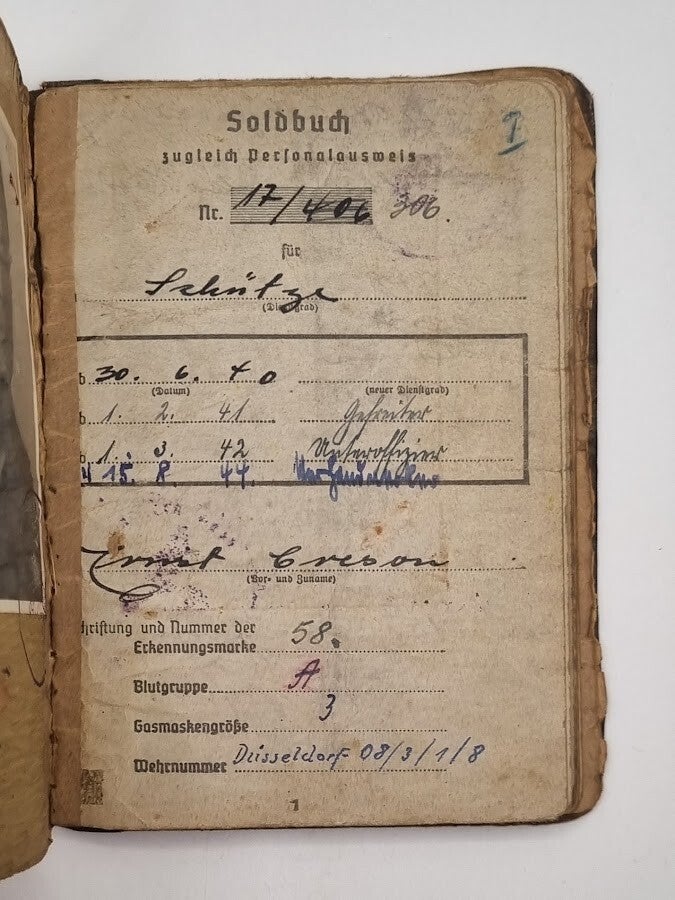 I
Soldbuch
zugleich Personalausweis
Nr. 17/406 306.
für
Schütze
(Dienstgrad)
b 30. 6. 40
(Datum) (neuer Dienstgrad)
b 1. 2. 41 Gefreiter
b 1. 3. 42 Unteroffizier
15. 8. 44.
Ernst Creson
(Vor- und Zuname)
hriftung und Nummer der
Erkennungsmarke 58.
Blutgruppe A
Gasmaskengröße 3
Wehrnummer Düsseldorf 08/3/1/8
1